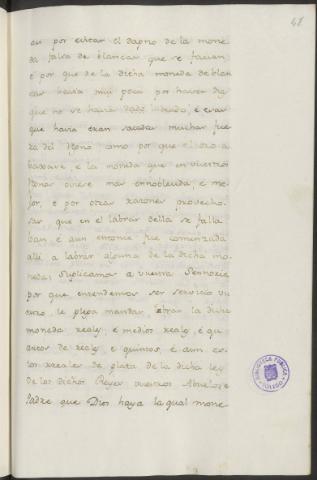 48
en por evitar el dapno de la mone
da falsa de blancas que se facian
é por que de la dicha moneda de blan
cas havia mui poca por haver dias
que no se havia dado labrado, é esas
que havia eran sacadas muchas fue
ra del Reyno como por que el oro a
baxase, e la moneda que en vuestros
Reynos oviese mas ennoblecida, e me
jor, é por otras razones provecho
sas que en el labrar della se falla
ban, é aun entonce fue comenzada
alli a labrar alguna de la dicha mo
neda: Suplicamos a vuestra Sennoria
por que entendemos ser servicio vu
estro, le plega mandar labrar la dicha
moneda reales, é medios reales, é qu
artos de reales, é quintos, é aun es
tos reales de plata de la dicha ley
de los dichos Reyes vuestros Abuelo, e
Padre que Dios haya la qual mone
BIBLIOTECA PUBLICA
TOLEDO